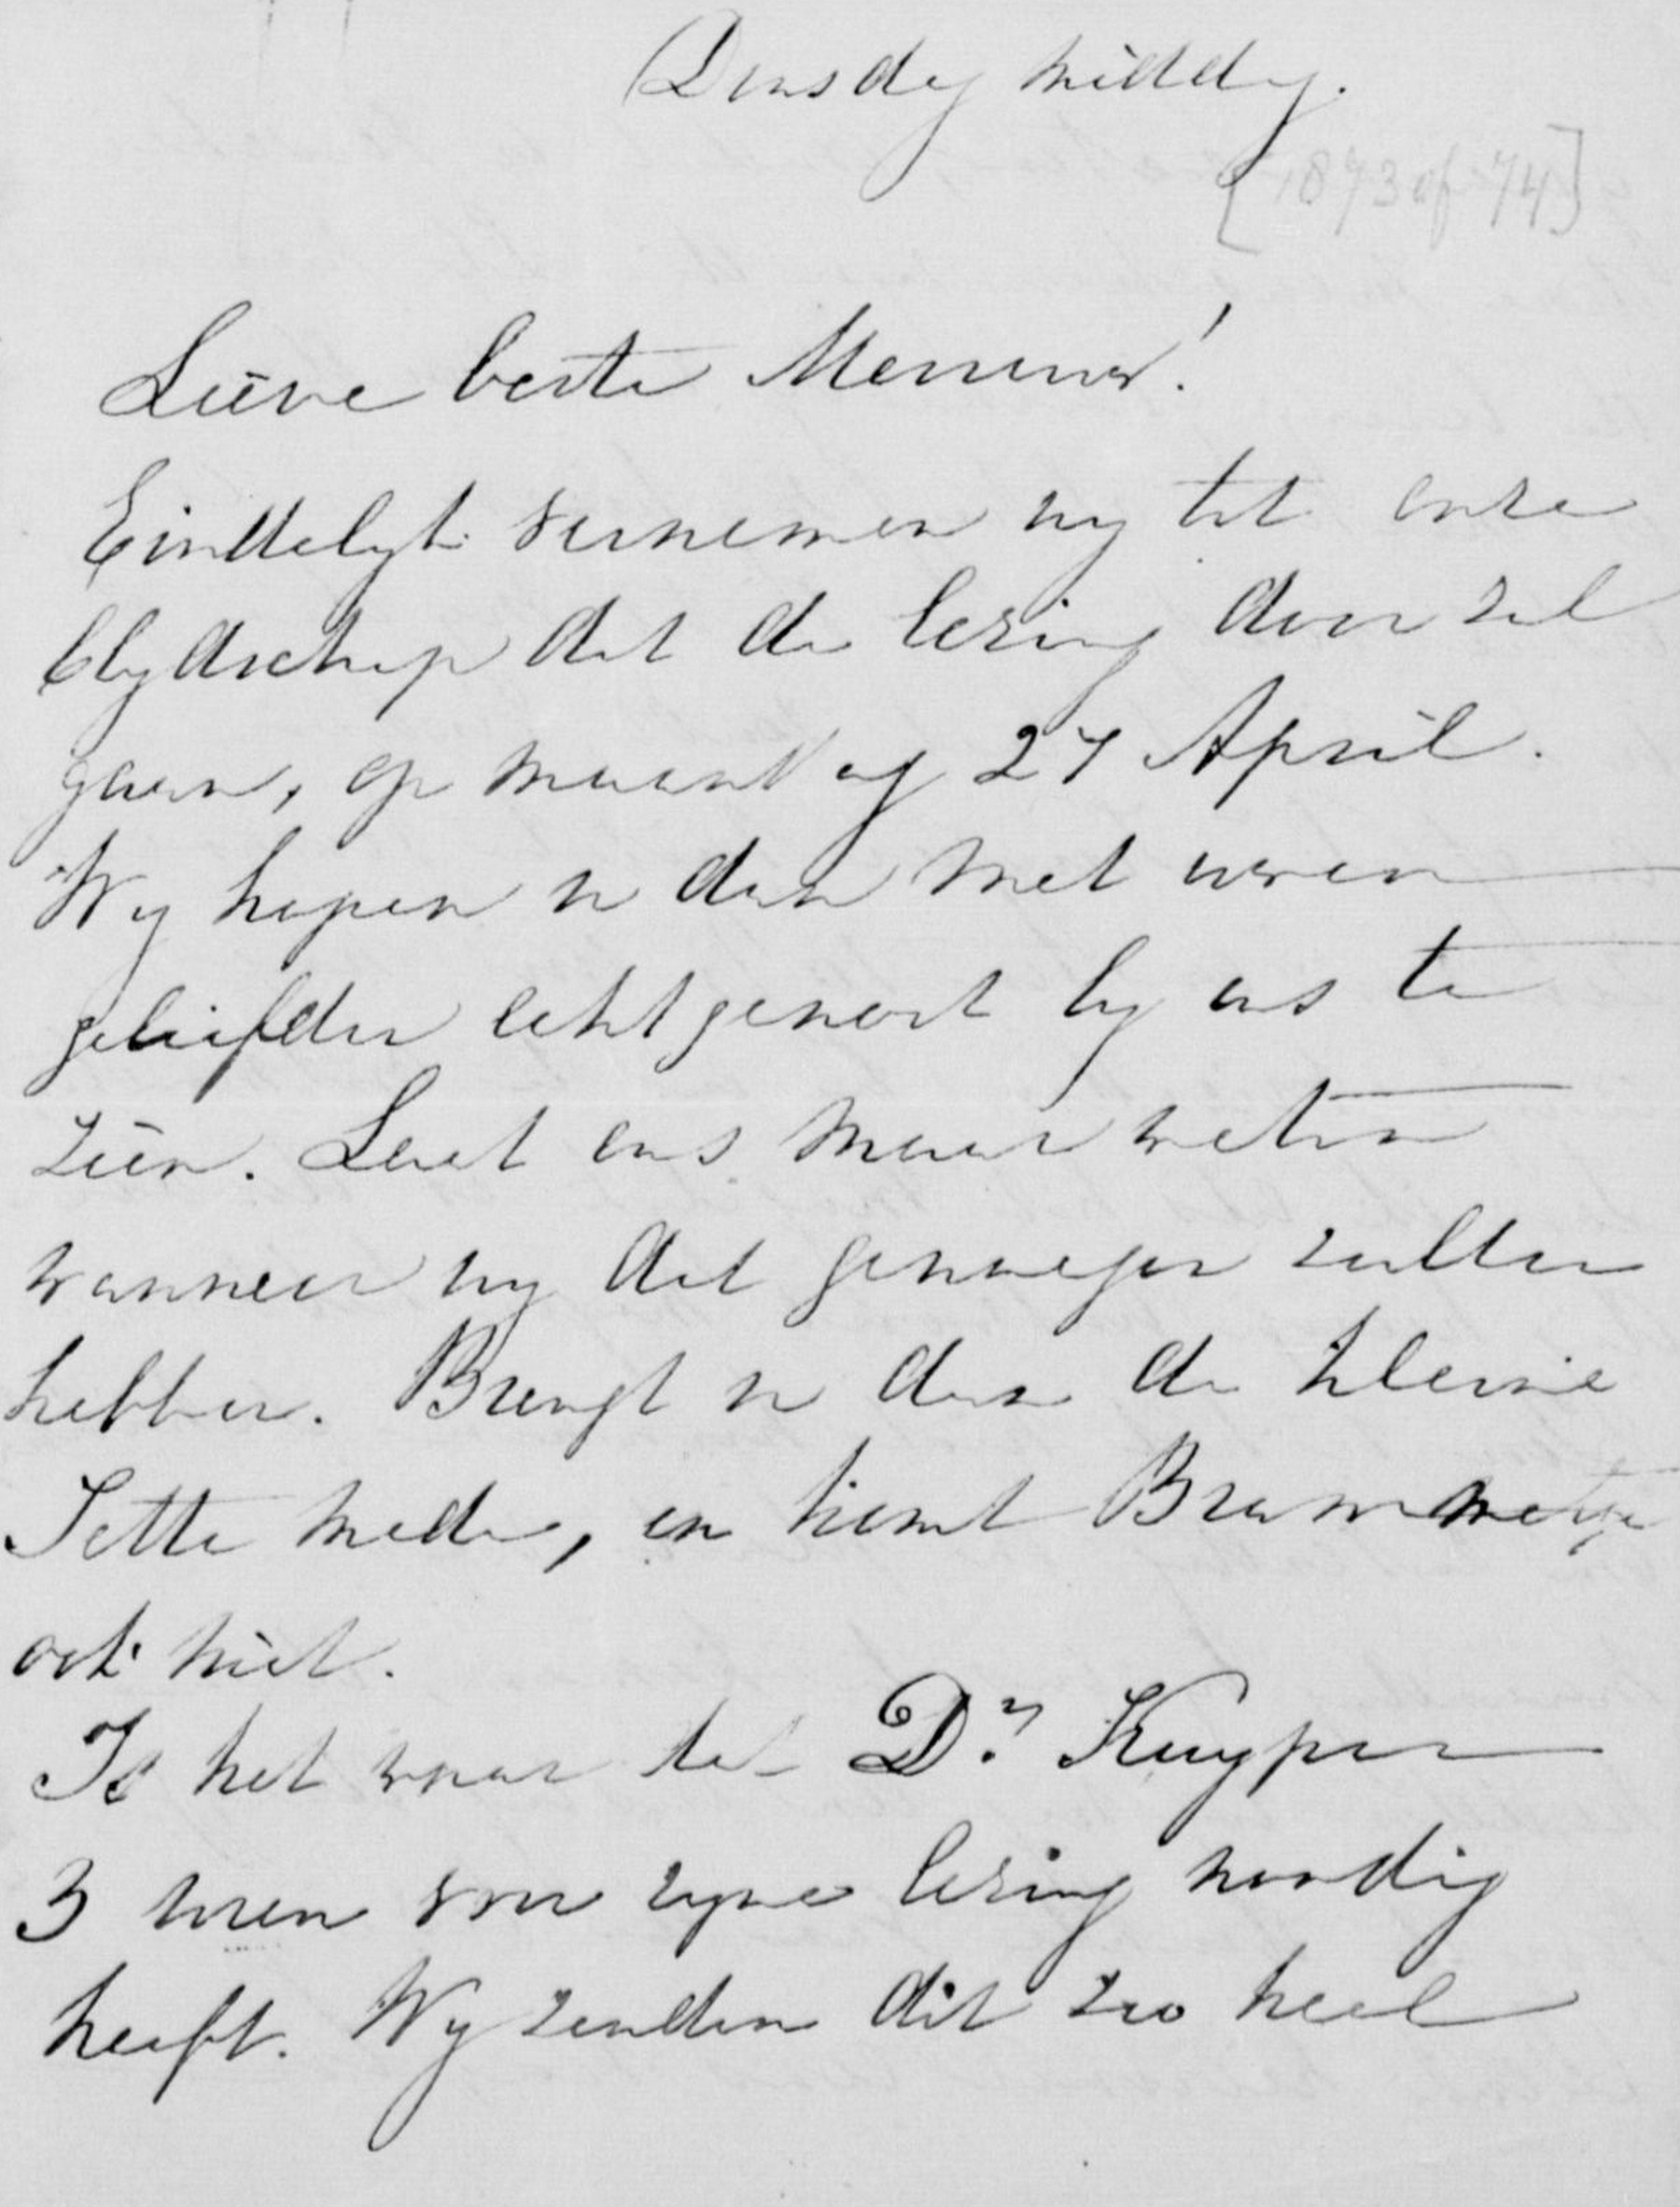 Dinsdag middag.
[1873 of 74]
Lieve beste Mevrouw!
Eindelyk vernemen wy tot onze
blydschap dat de lezing door zal
gaan, op maandag 27 April.
Wy hopen u dan met uwen
geliefden echtgenoot by ons te
zien. Laat ons maar weten
wanneer wy dat genoegen zullen
hebben. Brengt u dan de kleine
Jette mede, en komt Brammetje
ook niet.
Is het waar dat Dr. Kuyper
3 uren voor zyne lezing noodig
heeft. Wy zouden dit zoo heel